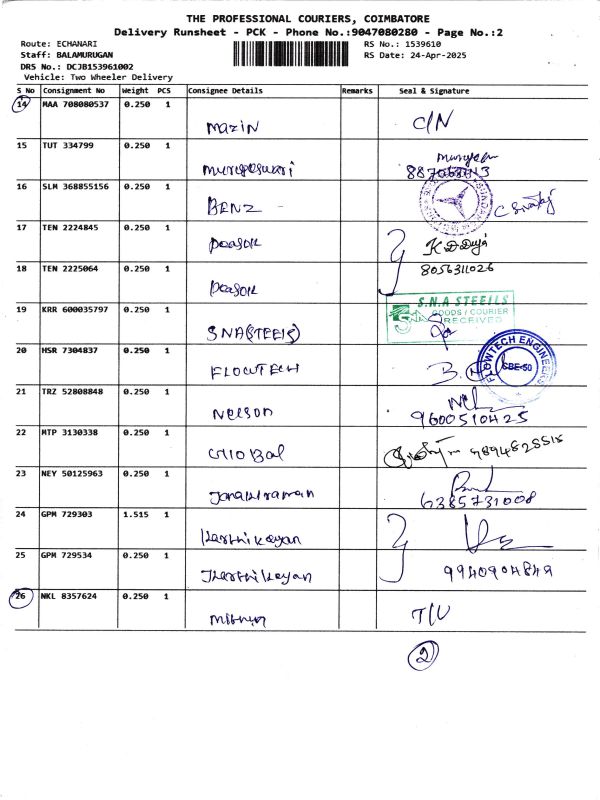 THE PROFESSIONAL COURIERS, COIMBATORE
Delivery Runsheet - PCK - Phone No.:9047080280 - Page No.:2
Route: ECHANARI
RS No.: 1539610
Staff: BALAMURUGAN
RS Date: 24-Apr-2025
DRS No.: DCJB153961002
Vehicle: Two Wheeler Delivery
S No Consignment No Weight PCS Consignee Details Remarks Seal & Signature
14 MAA 708080537 0.250 1
Mazin C/N
15 TUT 334799 0.250 1
Murugeswari
16 SLM 368855156 0.250 1
BENZ
17 TEN 2224845 0.250 1
18 TEN 2225064 0.250 1
8056311026
19 KRR 600035797 0.250 1
S.N.A STEEILS
GOODS / COURIER
RECEIVED
SNA(STEELS)
20 HSR 7304837 0.250 1
FLOWTECH
FLOWTECH ENGINEERS
SBE-50
21 TRZ 52808848 0.250 1
Nelson 9600510425
22 MTP 3130338 0.250 1
Global
23 NEY 50125963 0.250 1
Janakiraman 6385731008
24 GPM 729303 1.515 1
Karthikeyan
25 GPM 729534 0.250 1
Karthikeyan 9940904849
26 NKL 8357624 0.250 1
Mithun T/U
2